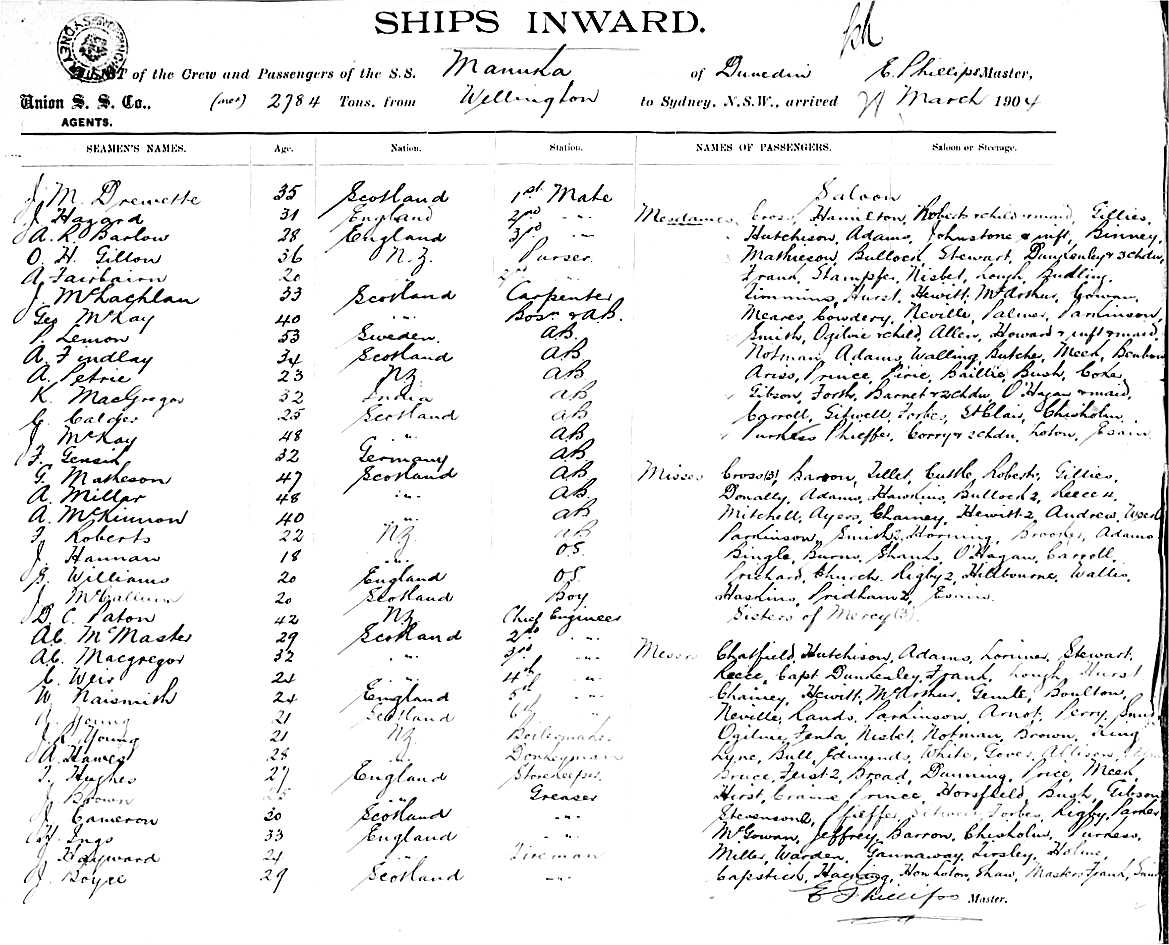 SHIPS INWARD.
LIST of the Crew and Passengers of the S.S. Manuka of Dunedin E. Phillips Master,
Union S. S. Co., 2784 Tons, from Wellington to Sydney, N.S.W., arrived March 1904
AGENTS.
SEAMEN'S NAMES. Age. Nation. Station. NAMES OF PASSENGERS. Saloon or Steerage.
Saloon
J. M. Drewette 35 Scotland 1st Mate
J. Hazard 31 England 2nd " Mesdames Cross, Hamilton, Roberts & child & maid, Gillies,
A. R. Barlow 28 England 3rd " Hutchison, Adams, Johnstone & inft, Binney,
O. H. Gillon 36 N.Z. Purser Mathieson, Bulloch, Stewart, Dunkerley & 3 chdn,
A. Fairbairn 20 " 2nd " Frank, Stampfer, Nisbet, Lough, Budling,
J. McLachlan 33 Scotland Carpenter Timmins, Hurst, Hewitt, McArthur, Gowan,
Geo McKay 40 " Bosn & AB. Meares, Cowdery, Neville, Palmer, Parkinson,
P. Lemon 53 Sweden AB Smith, Ogilvie & child, Allen, Howard & inft & maid,
A. Findlay 34 Scotland AB Notman, Adams, Walling, Butcher, Meek,
A. Petrie 23 NZ AB Ariss, Prince, Pirie, Baillie, Bush, Coxe,
K. MacGregor 32 India AB Gibson, Forth, Barnet & 2 chdn, O'Hagan & maid,
C. Calder 25 Scotland AB Carroll, Forbes, St Clair, Chisholm,
J. McKay 48 " AB Purkess, Phieffer, Corry & 2 chdn, Loton,
F. 32 Germany AB
G. Matheson 47 Scotland AB Misses Cross (3), Barron, Tillet, Cuttle, Roberts, Gillies,
A. Millar 48 " AB Donally, Adams, Hawkins, Bulloch 2, Reece 4,
A. McKinnon 40 " AB Mitchell, Ayers, Chainey, Hewitt 2, Andrew,
F. Roberts 22 NZ AB Parkinson, Smith 2, Horning, Brookes, Adams
J. Hannan 18 " OS Bingle, Burns, Shanks, O'Hagan, Carroll,
G. Williams 20 England OS Prichard, Church, Rigby 2, Hillbourne, Wallis,
J. McCallum 20 Scotland Boy Haskins, Pridham 2,
D. C. Paton 42 NZ Chief Engineer Sisters of Mercy (3).
Al. McMaster 29 Scotland 2nd "
Al. Macgregor 32 " 3rd " Messrs Chatfield, Hutchison, Adams, Lorimer, Stewart,
C. Weir 24 " 4th " Reece, Capt Dunkerley, Frank, Lough, Hurst
W. Naismith 24 England 5th " Chainey, Hewitt, McArthur, Gentle, Boulton,
J. Young 21 Scotland 6th " Neville, Rands, Parkinson, Arnot, Perry,
J. R. Young 21 NZ Boilermaker Ogilvie, Nisbet, Notman, Brown, King
A. Hawes 28 " Donkeyman Lyne, Bull, Edmunds, White, Allison,
T. Hughes 27 England Storekeeper Bruce, Feist 2, Broad, Dunning, Price, Meek,
J. Brown 25 " Greaser Hirst, Prince, Horsfield, Bush, Gibson
J. Cameron 30 Scotland " Stevenson 2, Phieffer, Forbes, Rigby, Parker
H. Ings 33 England " McGowan, Jeffrey, Barron, Chisholm, Purkess,
J. Hayward 24 " Fireman Miller, Warden, Gannaway, Tinsley, Holme,
J. Boyce 29 Scotland " Capstick, Shaw, Masters Frank,
E. Phillips Master.